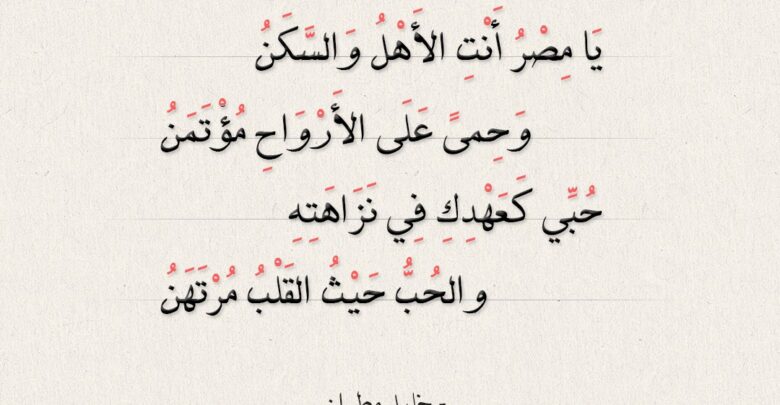 يَا مِصْرُ أَنْتِ الأَهْلُ وَالسَّكَنُ
وَحِمىً عَلَى الأَرْوَاحِ مُؤْتَمَنُ
حُبِّي كَعَهْدِكِ فِي نَزَاهَتِهِ
والحُبُّ حَيْثُ القَلْبُ مُرْتَهَنُ